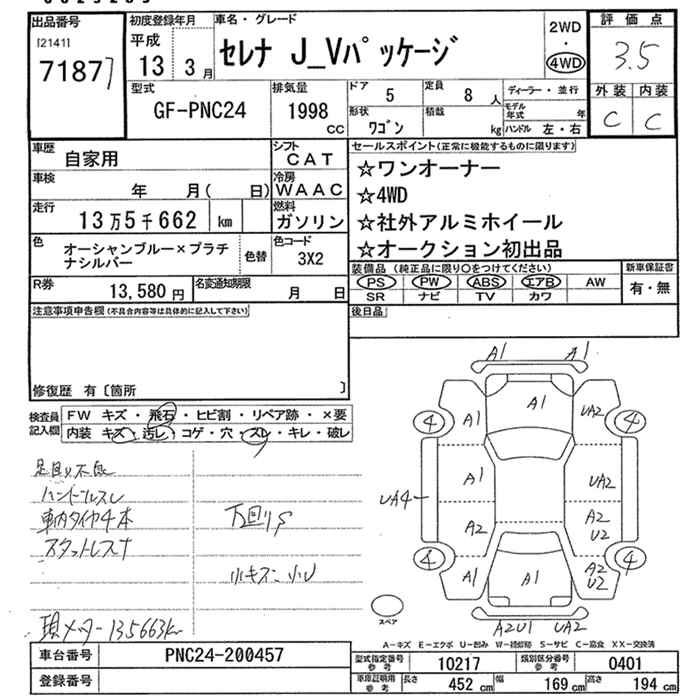 出品番号
[2141]
7187
初度登録年月
平成
13 3月
車名・グレード
セレナ J_Vパッケージ
2WD
・
4WD
評価点
3.5
外装 内装
C C
型式
GF-PNC24
排気量
1998
cc
ドア
5
定員
8人
形状
ワゴン
積載
kg
ディーラー・並行
モデル年式 年
ハンドル 左・右
車歴
自家用
シフト
CAT
車検
年 月( 日)
冷房
WAAC
走行
13万5千662 km
燃料
ガソリン
色
オーシャンブルー×プラチ
ナシルバー
色替
色コード
3X2
R券
13,580円
名変通知期限
月 日
セールスポイント(正常に機能するものに限ります)
☆ワンオーナー
☆4WD
☆社外アルミホイール
☆オークション初出品
装備品(純正品に限り○をつけてください)
PS PW ABS エアB AW
SR ナビ TV カワ
新車保証書
有・無
注意事項申告欄(不具合内容等は具体的に記入して下さい)
後日品
修復歴 有[箇所 ]
検査員
記入欄
FW キズ・飛石・ヒビ割・リペア跡・×要
内装 キズ・汚レ・コゲ・穴・スレ・キレ・破レ
ハンドルスレ
車内タイヤ4本
スタットレス
万回りS
小キズ・小U
現メーター135663km
A1 A1
A1
A1 UA2
4 4
A1 UA2
UA4
A2 A2
U2
4 4
A1 A1 A2
U2
A2U1 UA2
スペア
A-キズ E-エクボ U-凹み W-補修跡 S-サビ C-腐食 XX-交換済
車台番号
PNC24-200457
登録番号
型式指定番号
参考
10217
類別区分番号
参考
0401
車庫証明用
参考
長さ 452cm 幅 169cm 高さ 194cm